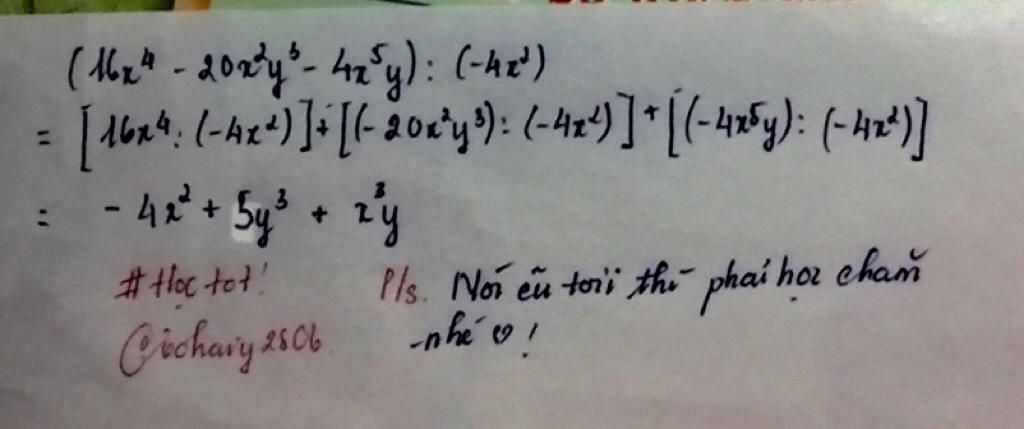 (16x⁴ - 20x²y³ - 4x⁵y) : (-4x²)
= [16x⁴ : (-4x²)] + [(-20x²y³) : (-4x²)] + [(-4x⁵y) : (-4x²)]
= - 4x² + 5y³ + x³y
#Học tot! P/s. Nói
thì phải học chăm
-nhé ♡!